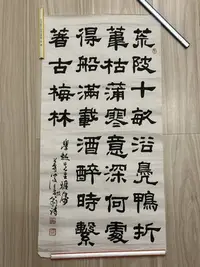 荒陂十畝浴鳧鴨折
葦枯蒲寒意深何處
得船滿載酒醉時繫
著古梅林